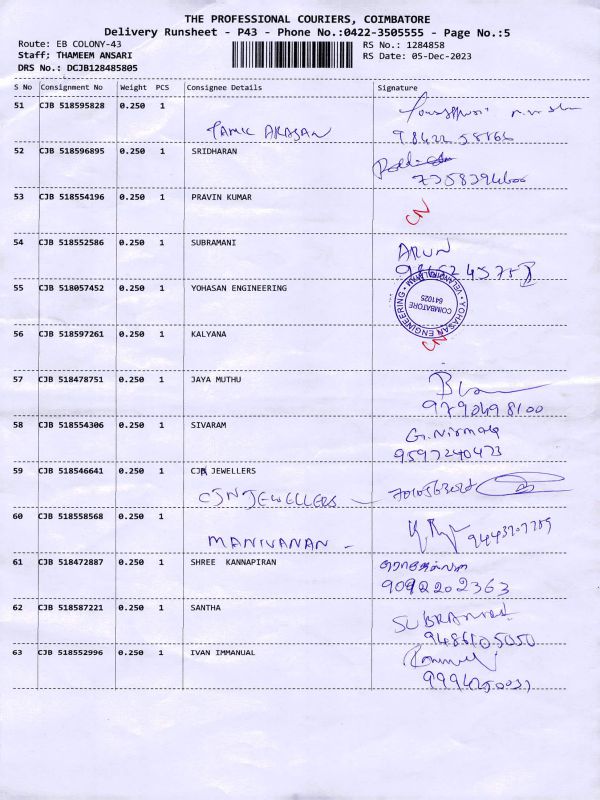 THE PROFESSIONAL COURIERS, COIMBATORE
Delivery Runsheet - P43 - Phone No.:0422-3505555 - Page No.:5
Route: EB COLONY-43 RS No.: 1284858
Staff; THAMEEM ANSARI RS Date: 05-Dec-2023
DRS No.: DCJB128485805
S No Consignment No Weight PCS Consignee Details Signature
51 CJB 518595828 0.250 1
TAMIL ARASAN
52 CJB 518596895 0.250 1 SRIDHARAN
53 CJB 518554196 0.250 1 PRAVIN KUMAR
CN
54 CJB 518552586 0.250 1 SUBRAMANI
ARUN
55 CJB 518057452 0.250 1 YOHASAN ENGINEERING
YOHASAN ENGINEERING
VELANDIPALAYAM
COIMBATORE
641025
56 CJB 518597261 0.250 1 KALYANA
CN
57 CJB 518478751 0.250 1 JAYA MUTHU
9790498100
58 CJB 518554306 0.250 1 SIVARAM
G. Nirmala
9597240473
59 CJB 518546641 0.250 1 CJN JEWELLERS
CJN JEWELLERS
60 CJB 518558568 0.250 1
MANIVANAN - 9443707789
61 CJB 518472887 0.250 1 SHREE KANNAPIRAN
9092202363
62 CJB 518587221 0.250 1 SANTHA
9486105050
63 CJB 518552996 0.250 1 IVAN IMMANUAL
9994250031